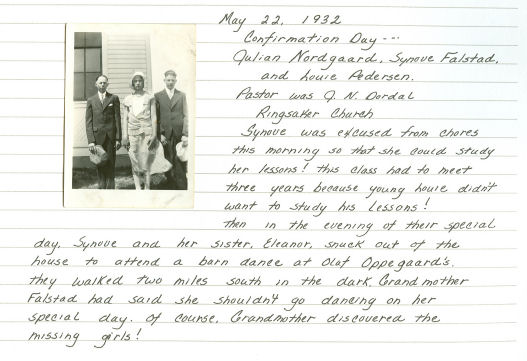 May 22, 1932
Confirmation Day---
Julian Nordgaard, Synove Falstad,
and Louie Pedersen.
Pastor was J. N. Dordal
Ringsaker Church
Synove was excused from chores
this morning so that she could study
her lessons! this class had to meet
three years because young Louie didn't
want to study his lessons!
then in the evening of their special
day, Synove and her sister, Eleanor, snuck out of the
house to attend a barn dance at Olaf Oppegaard's.
they walked two miles south in the dark. Grandmother
Falstad had said she shouldn't go dancing on her
special day. Of course, Grandmother discovered the
missing girls!